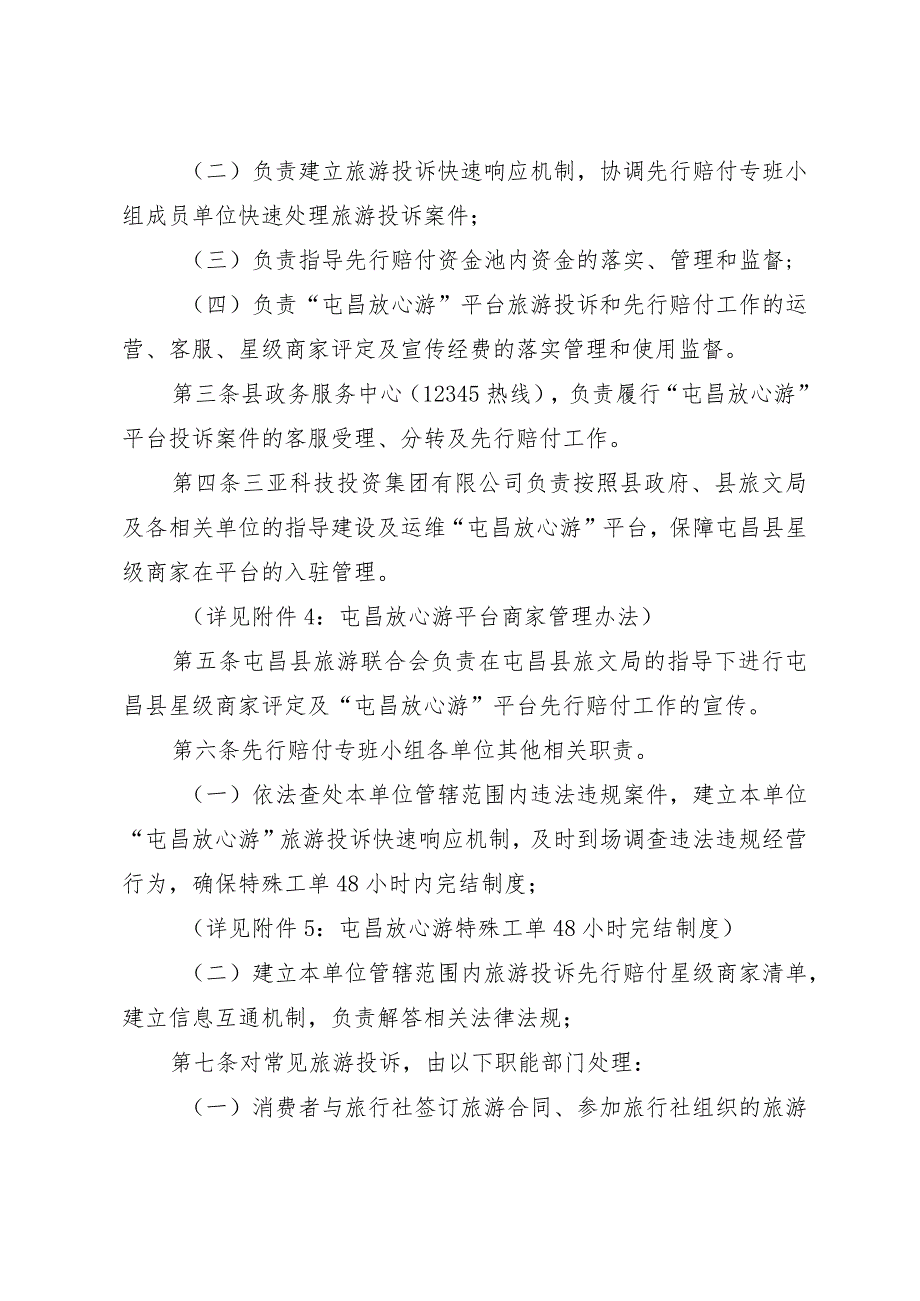 （二）负责建立旅游投诉快速响应机制，协调先行赔付专班小
组成员单位快速处理旅游投诉案件；
（三）负责指导先行赔付资金池内资金的落实、管理和监督；
（四）负责“屯昌放心游”平台旅游投诉和先行赔付工作的运
营、客服、星级商家评定及宣传经费的落实管理和使用监督。
第三条县政务服务中心（12345 热线），负责履行“屯昌放心游”
平台投诉案件的客服受理、分转及先行赔付工作。
第四条三亚科技投资集团有限公司负责按照县政府、县旅文局
及各相关单位的指导建设及运维“屯昌放心游”平台，保障屯昌县星
级商家在平台的入驻管理。
（详见附件 4：屯昌放心游平台商家管理办法）
第五条屯昌县旅游联合会负责在屯昌县旅文局的指导下进行屯
昌县星级商家评定及“屯昌放心游”平台先行赔付工作的宣传。
第六条先行赔付专班小组各单位其他相关职责。
（一）依法查处本单位管辖范围内违法违规案件，建立本单位
“屯昌放心游”旅游投诉快速响应机制，及时到场调查违法违规经营
行为，确保特殊工单 48 小时内完结制度；
（详见附件 5：屯昌放心游特殊工单 48 小时完结制度）
（二）建立本单位管辖范围内旅游投诉先行赔付星级商家清单，
建立信息互通机制，负责解答相关法律法规；
第七条对常见旅游投诉，由以下职能部门处理：
（一）消费者与旅行社签订旅游合同、参加旅行社组织的旅游